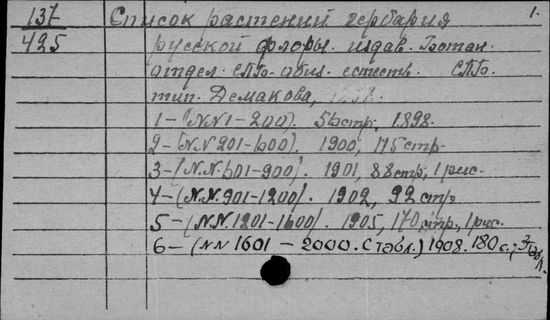 137 Список растений гербария 1.
425 русской флоры. издав. Ботан.
отдел. СПб. общ. естеств. СПб.
тип. Демакова, 1898.
1-(NN1-200). 56 стр, 1898.
2-(N.N 201-600). 1900, 175 стр.
3-(N.N. 601-900). 1901, 88 стр, 1 рис.
4-(N.N. 901-1200). 1902, 92 стр.
5-(N.N 1201-1600). 1905, 170 стр, 1 рис.
6-(NN 1601-2000. С табл.) 1908. 180 с., 3 табл.